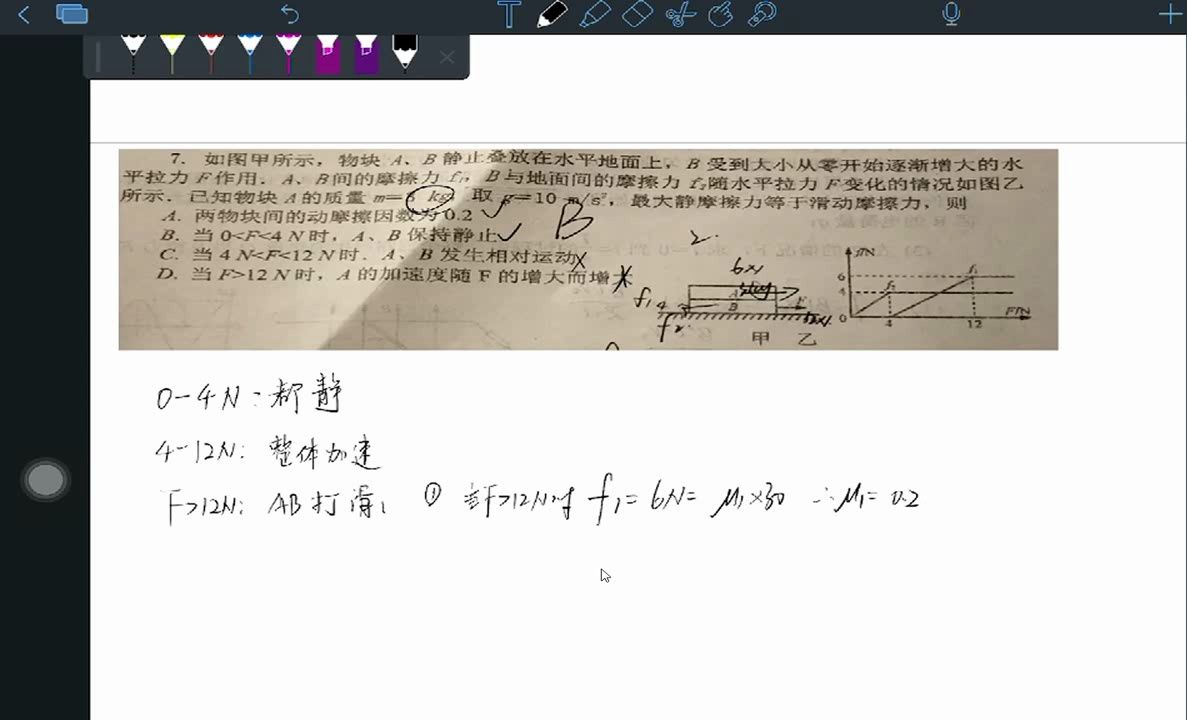 7. 如图甲所示，物块 A、B 静止叠放在水平地面上，B 受到大小从零开始逐渐增大的水
平拉力 F 作用．A、B间的摩擦力 f₁，B 与地面间的摩擦力 f₂随水平拉力 F 变化的情况如图乙
所示．已知物块 A 的质量 m=3 kg 取 g=10 m/s²，最大静摩擦力等于滑动摩擦力，则
A. 两物块间的动摩擦因数为 0.2 ✓
B. 当 0<F<4 N 时，A、B 保持静止 ✓
B
2.
C. 当 4 N<F<12 N 时．A、B 发生相对运动 ×
D. 当 F>12 N 时，A 的加速度随 F 的增大而增大
f/N
6
f₁
4
f₂
0
4
12
F/N
6N
f₁
A
B
F
f₂
甲 乙
0-4N: 都静
4-12N: 整体加速
F>12N: AB打滑 ① 当F>12N时 f₁=6N=μ₁×30 ∴μ₁=0.2